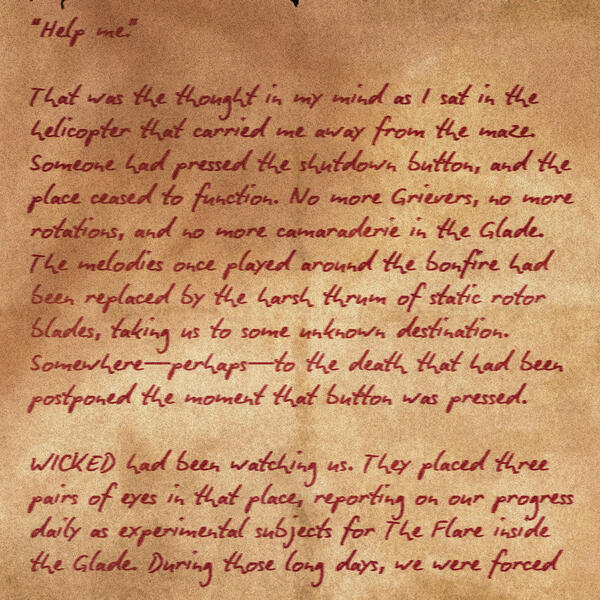 "Help me."
That was the thought in my mind as I sat in the
helicopter that carried me away from the maze.
Someone had pressed the shutdown button, and the
place ceased to function. No more Grievers, no more
rotations, and no more camaraderie in the Glade.
The melodies once played around the bonfire had
been replaced by the harsh thrum of static rotor
blades, taking us to some unknown destination.
Somewhere—perhaps—to the death that had been
postponed the moment that button was pressed.
WICKED had been watching us. They placed three
pairs of eyes in that place, reporting on our progress
daily as experimental subjects for The Flare inside
the Glade. During those long days, we were forced